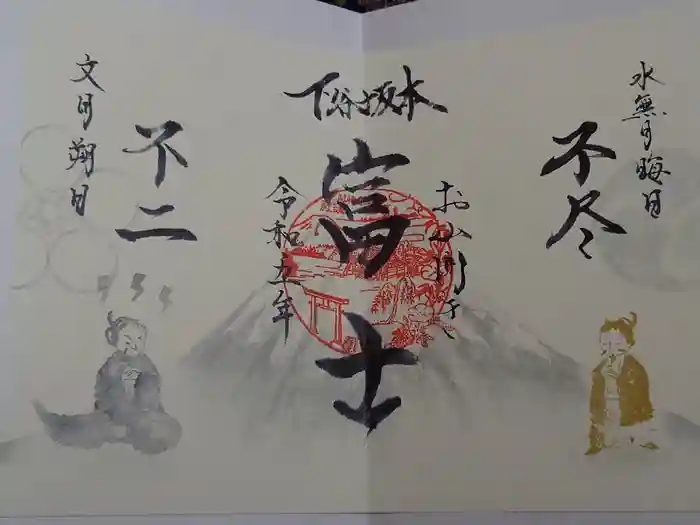 水無月晦日
不尽
下谷坂本
お山開き
富士
令和五年
不二
文月朔日